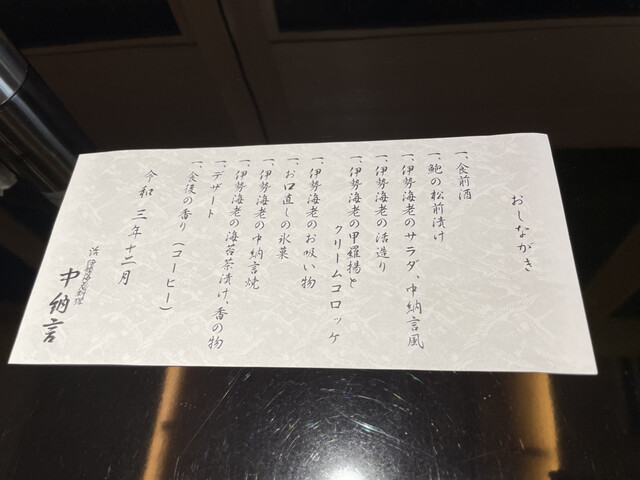 おしながき
一、食前酒
一、鮑の松前漬け
一、伊勢海老のサラダ、中納言風
一、伊勢海老の活造り
一、伊勢海老の甲羅揚と
クリームコロッケ
一、伊勢海老のお吸い物
一、お口直しの氷菓
一、伊勢海老の中納言焼
一、伊勢海老の海苔茶漬け、香の物
一、デザート
一、食後の香り（コーヒー）
令和三年十二月
活伊勢海老料理
中納言